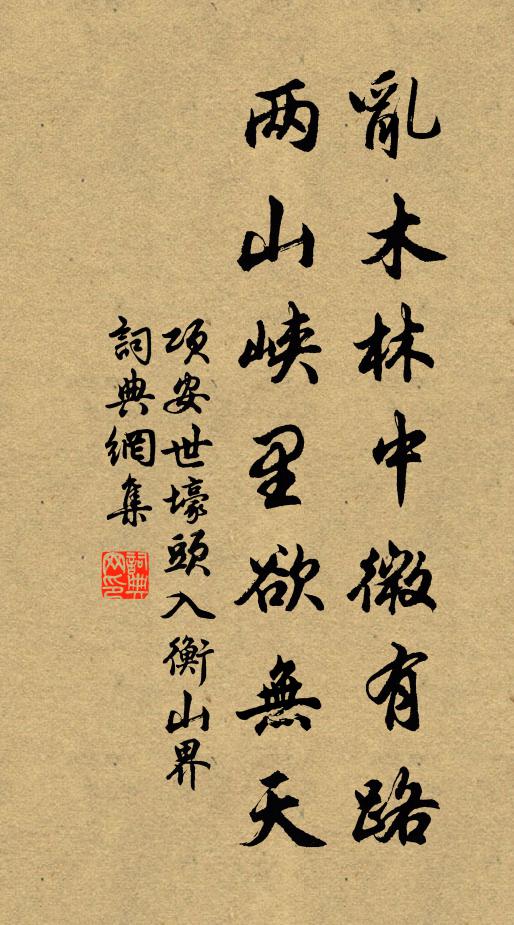 亂木林中微有路
两山峽里欲無天
項安世壕頭入衡山界
詞典網集
詞典网印